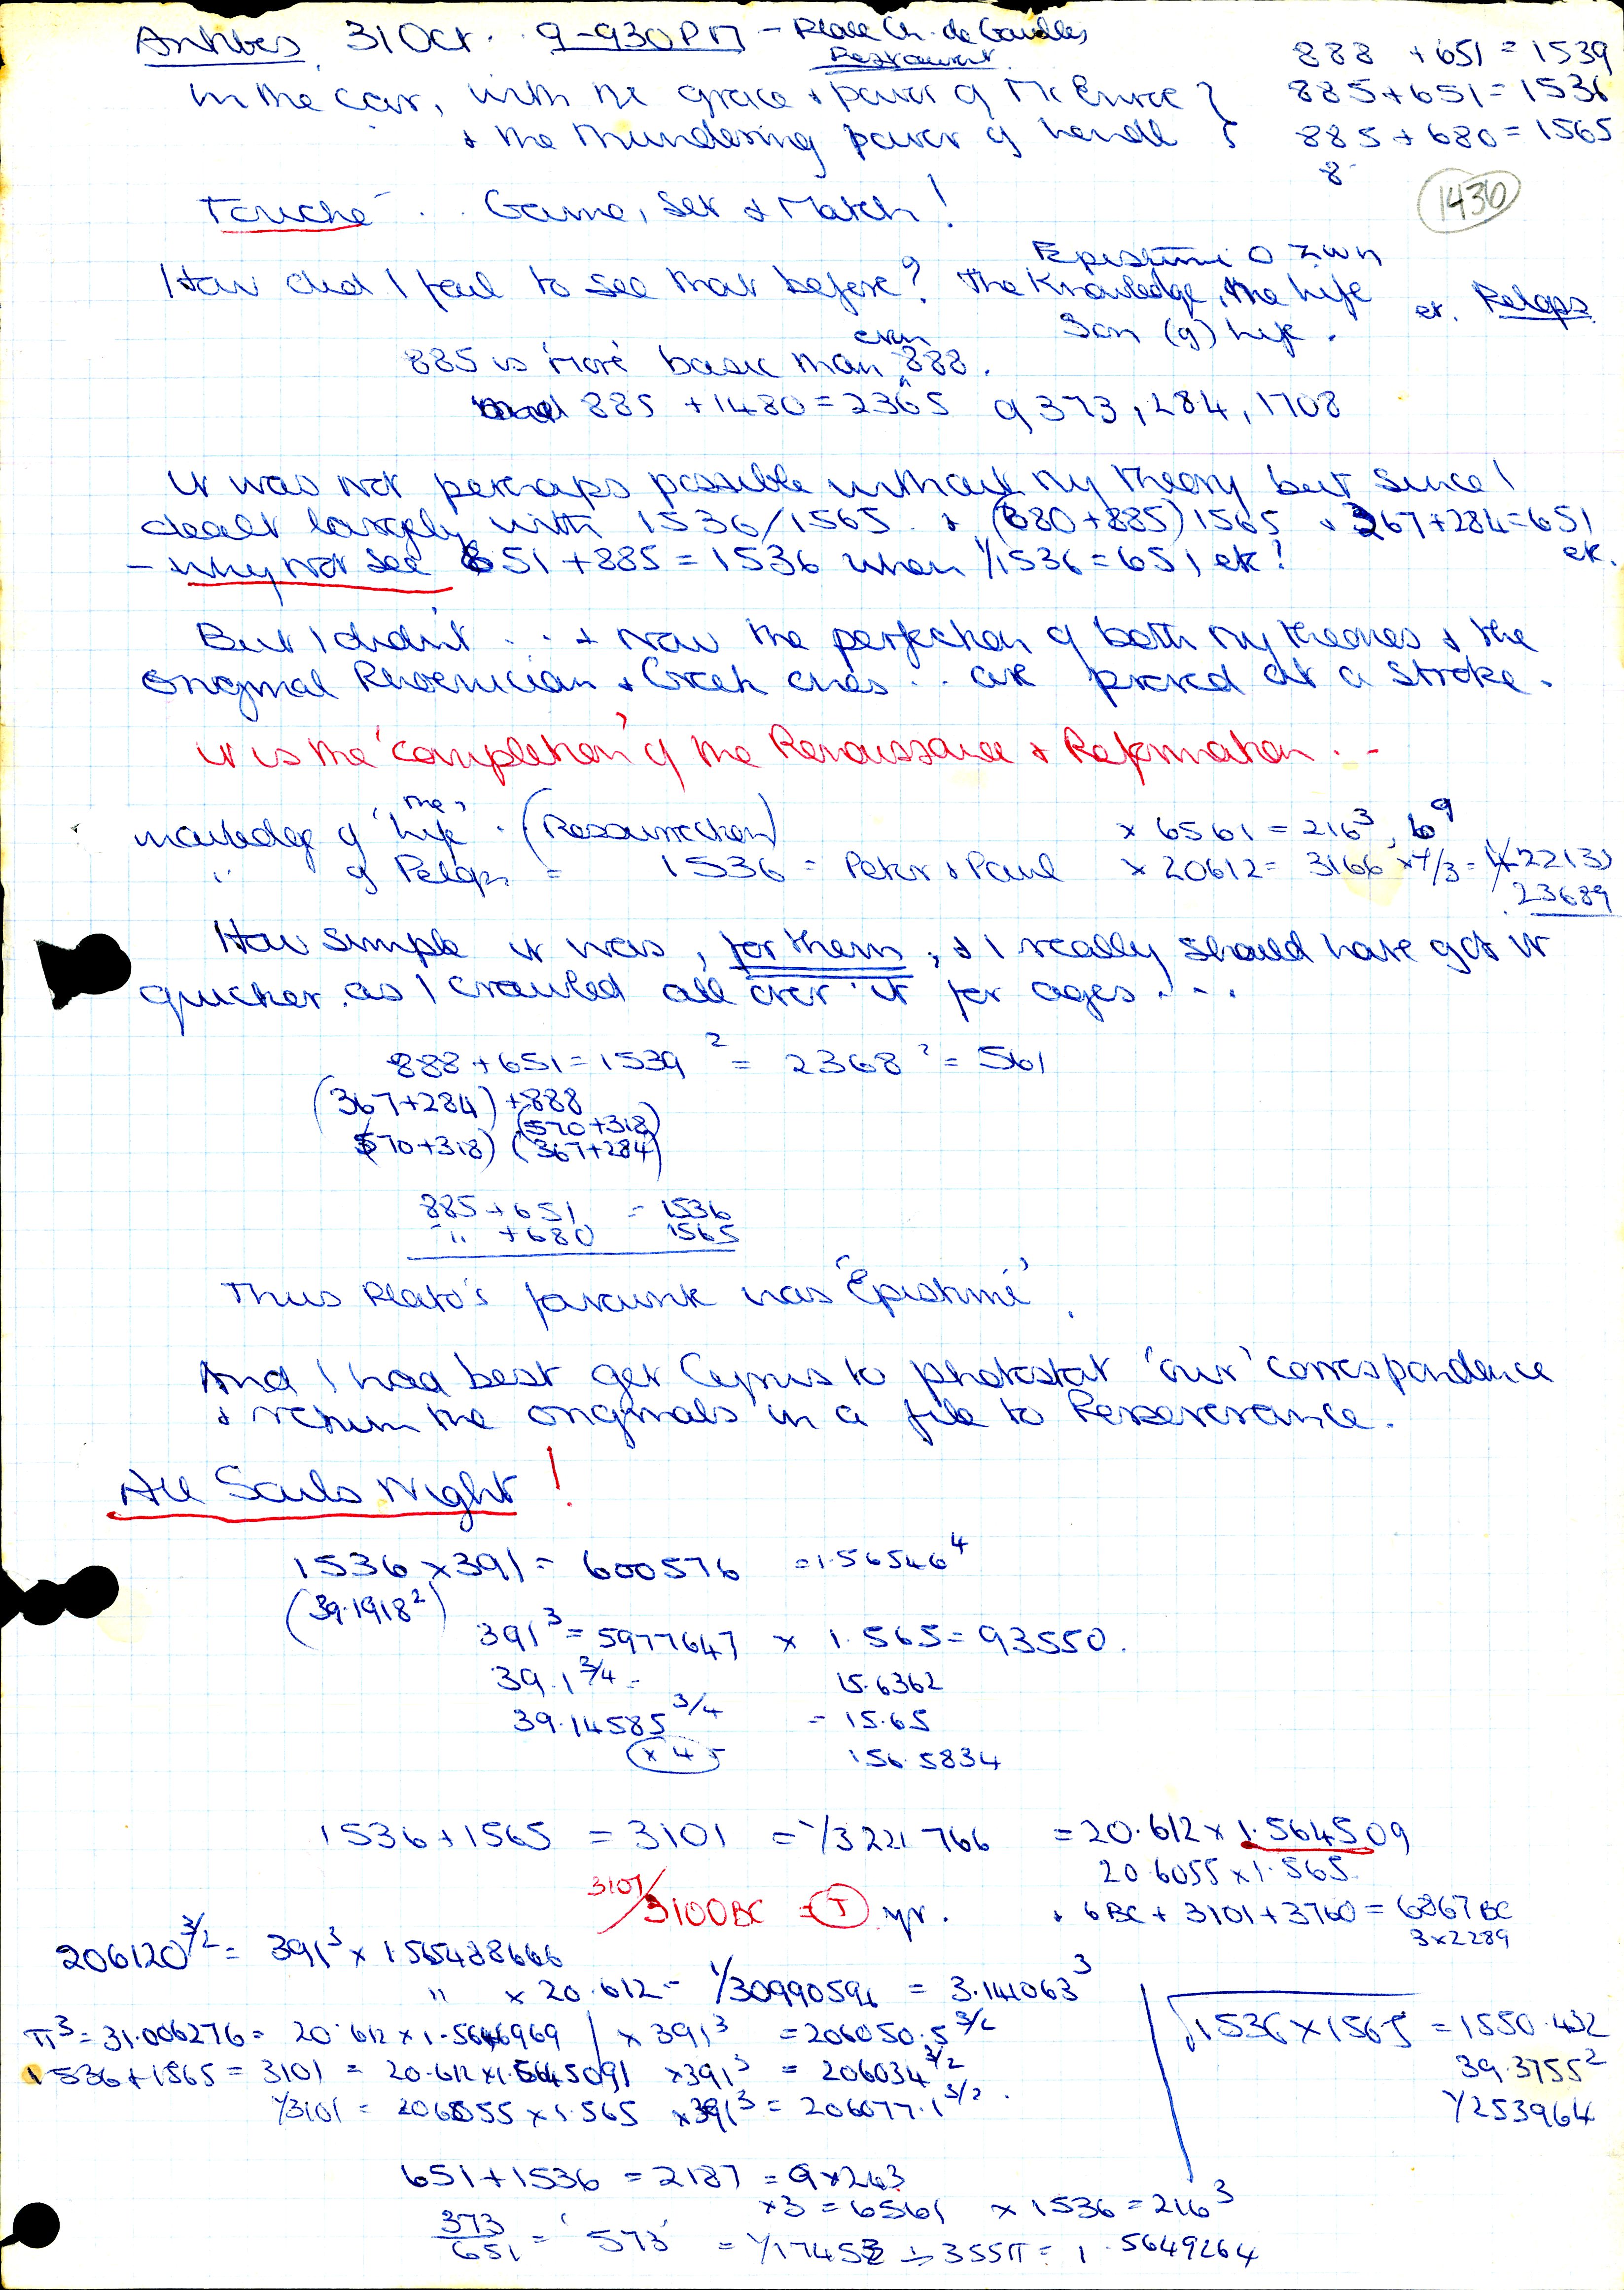 Antibes 31 Oct. 9-930PM - Place Ch. de Gaulles
Restaurant
888 + 651 = 1539
In the car, with the grace & power of McEnroe } 885 + 651 = 1536
& the thundering power of Lendl } 885 + 680 = 1565
8
Touché . . Game, Set & Match!
1436
Epistimi O Zwn
How did I fail to see that before? The Knowledge, the life et. Pelops
Son (of) life.
885 is 'more' basic than even 888.
885 + 1480 = 2365 of 373, 284, 1708
It was not perhaps possible without my theory but since I
dealt largely with 1536/1565 & (680+885) 1565 & 367+284=651
etc.
- why not see 651 + 885 = 1536 when 1/1536 = 651 etc?
But I didn't . . . & now the perfection of both my theories & the
original Phoenician & Greek ones . . are proved at a stroke.
it is the 'completion' of the Renaissance & Reformation . . -
knowledge of 'the' life . (Resurrection) x 6561 = 216³, 6⁹
" of Pelops = 1536 = Peter & Paul x 20612 = 3166 x 4/3 = 1/
23689
How simple it was, for them, & I really should have got it
quicker as I crawled all over it for ages . . .
888 + 651 = 1539 ² = 2368 ² = 561
(367+284) + 888
(570+318)
(570+318) (367+284)
885 + 651 = 1536
" + 680 1565
Thus Plato's favourite was 'Epistimi'.
And I had best get Cyrus to photostat 'our' correspondence
& return the originals in a file to Perseverance.
All Souls Night!
1536 x 391 = 600576 = 1.56546⁴
(39.1918²)
391³ = 59776471 x 1.565 = 93550.
39.1 ¾ = 15.6362
39.14585 ¾ = 15.65
x 4 5 156.5834
1536 + 1565 = 3101 = 1/3221766 = 20.612 x 1.564509
20.6055 x 1.565
3101/3100BC = J yr. & 6BC + 3101 + 3760 = 6867 BC
3 x 2289
206120 3/2 = 391³ x 1.565488666
" x 20.612 = 1/30990596 = 3.141063³
π³ = 31.006276 = 20.612 x 1. x 391³ = 206050.5 3/2
1536 + 1565 = 3101 = 20.612 x 1.5645091 x 391³ = 206034 3/2
1/3101 = x 1.565 x 391³ = 206077.1 3/2
√1536 x 1565 = 1550.432
39.3755²
1/253964
651 + 1536 = 2187 = 9 x 243
x 3 = 6561 x 1536 = 216³
373/651 = '573' = ÷ 355π = 1.5649264